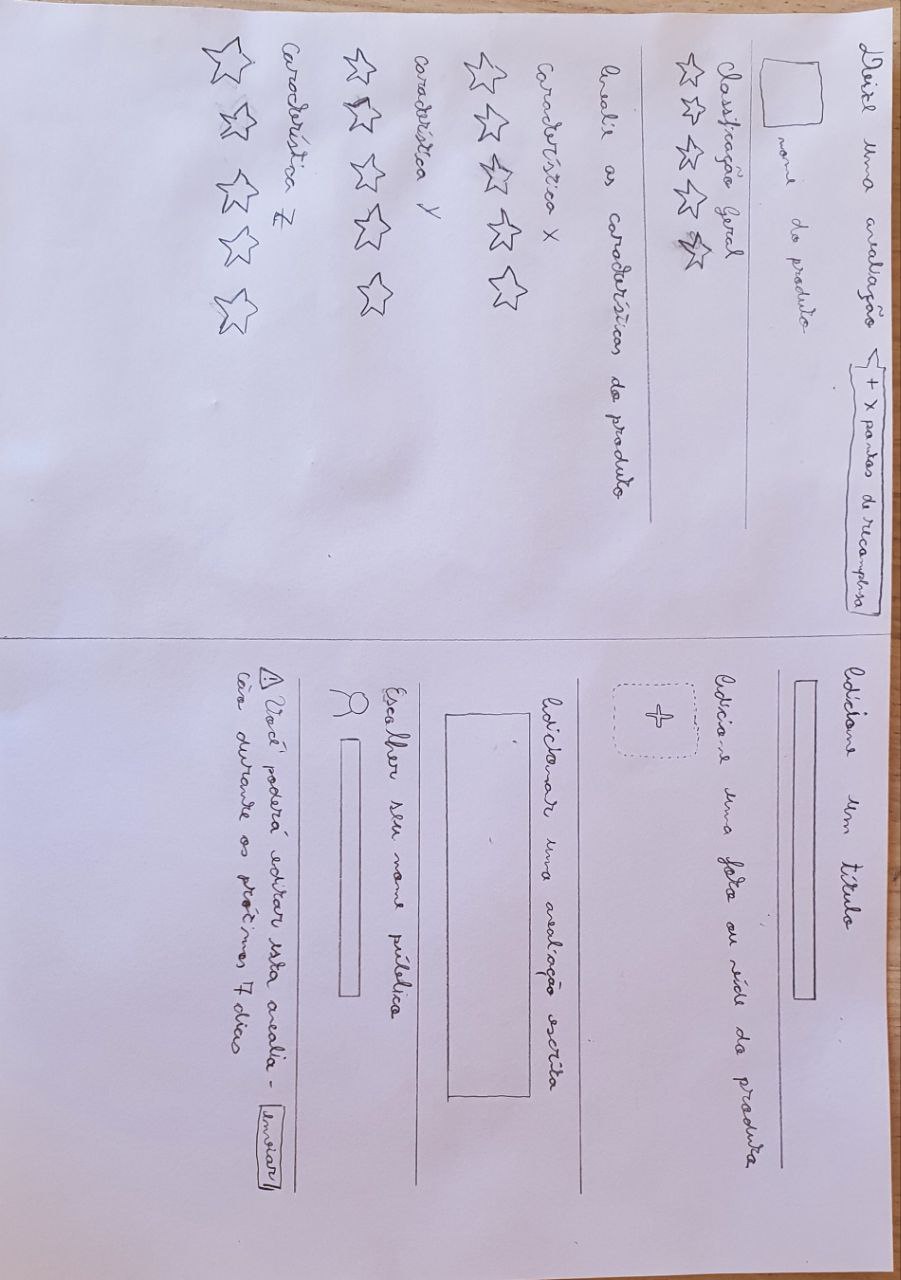 Deixe uma avaliação
+ x pontos de recompensa
nome do produto
Classificação Geral
Avalie as características do produto
Característica X
Característica Y
Característica Z
Adicione um título
Adicione uma foto ou vídeo do produto
Adicionar uma avaliação escrita
Escolher seu nome público
Você poderá editar esta avalia-
ção durante os próximos 7 dias
enviar